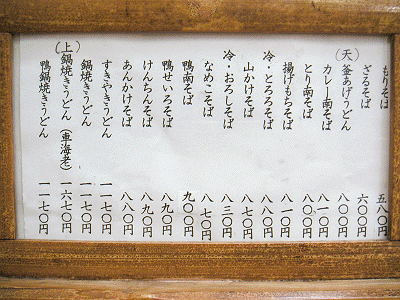 もりそば 五八〇円
ざるそば 六〇〇円
(天)釜あげうどん 八〇〇円
カレー南そば 八〇〇円
とり南そば 八〇〇円
揚げもちそば 八一〇円
冷・とろろそば 八八〇円
山かけそば 八七〇円
冷・おろしそば 八三〇円
なめこそば 八七〇円
鴨南そば 九〇〇円
鴨せいろそば 八九〇円
けんちんそば 八九〇円
あんかけそば 八八〇円
すきやきうどん 一一七〇円
鍋焼きうどん 一一七〇円
(上)鍋焼きうどん(車海老) 一六七〇円
鴨鍋焼きうどん 一一七〇円